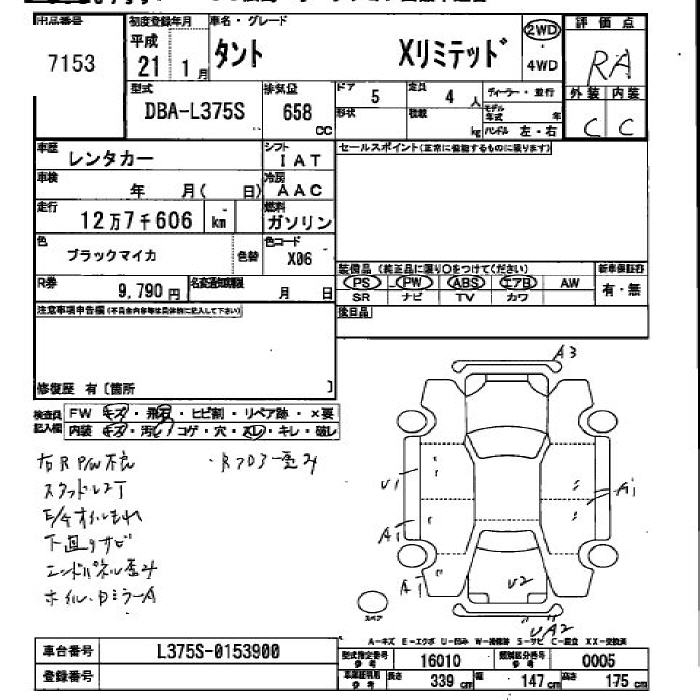 出品番号 初度登録年月 車名・グレード 2WD 評価点
7153 平成 21 1月 タント Xリミテッド 4WD RA
型式 排気量 ドア 5 定員 4人 ディーラー・並行 外装 内装
DBA-L375S 658 cc 形状 積載 kg モデル年式 年 ハンドル 左・右 C C
車歴 レンタカー シフト IAT セールスポイント(正常に機能するものに限ります)
車検 年 月( 日) 冷房 AAC
走行 12万7千606 km 燃料 ガソリン
色 ブラックマイカ 色替 色コード X06
装備品 (純正品に限り○をつけてください) 新車保証書
R券 9,790円 名変通知期限 月 日 PS PW ABS エアB AW 有・無
SR ナビ TV カワ
注意事項申告欄(不具合内容等は具体的に記入して下さい) 後日品
修復歴 有〔箇所 〕
A3
検査員 FW キズ・飛石・ヒビ割・リペア跡・×要
記入欄 内装 キズ・汚レ・コゲ・穴・スレ・キレ・破レ
右R P/W不良 ・Rフロアー歪み
U1 A1
E/Gオイルもれ
A1
下廻りサビ
エンドパネル歪み A1 U2
ホイル・DミラーA
スペア UA2
A-キズ E-エクボ U-凹み W-補修跡 S-サビ C-腐食 XX-交換済
車台番号 L375S-0153900 型式指定番号 参考 16010 類別区分番号 参考 0005
登録番号 長さ 339cm 幅 147cm 高さ 175cm